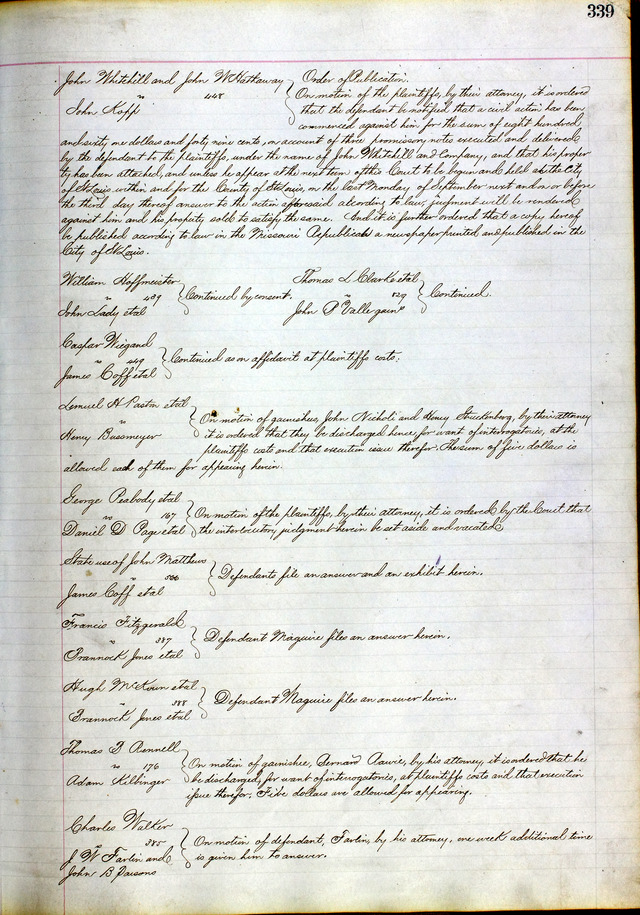 339
John Whitehill and John W Hathaway } Order of Publication.
vs 448 On motion of the plaintiffs, by their attorney, it is ordered
John Kopp that the defendant be notified that a civil action has been
commenced against him for the sum of eight hundred
and sixty one dollars and forty nine cents, on account of three promissory notes executed and delivered
by the defendant to the plaintiffs, under the name of John Whitehill and Company, and that his proper
ty has been attached, and unless he appear at the next term of this Court to be begun and held at the City
of St Louis within and for the County of St Louis, on the last Monday of September next and on or before
the third day thereof answer to the action aforesaid according to law, judgment will be rendered
against him and his property sold to satisfy the same. And it is further ordered that a copy hereof
be published according to law in the Missouri Republican a newspaper printed and published in the
City of St Louis.
William Hoffmeister
vs 489 } Continued by consent.
John Lady etal
Thomas L Clarke etal
vs 529 } Continued.
John P Valle garn
Caspar Wiegand
vs 449 } Continued as on affidavit at plaintiffs costs.
James Goff etal
Lemuel H Paston etal
vs } On motion of garnishees, John Nicholi and Henry Stuckenberg, by their attorney
Henry Bussmeyer it is ordered that they be discharged hence, for want of interogatories, at the
plaintiffs costs and that execution issue therefor. The sum of five dollars is
allowed each of them for appearing herein.
George Peabody etal
vs 167 } On motion of the plaintiffs, by their attorney, it is ordered by the Court that
Daniel D Page etal the interlocutory judgment herein be set aside and vacated.
State use of John Matthews
vs 586 } Defendants file an answer and an exhibit herein.
James Goff etal
Francis Fitzgerald
vs 387 } Defendant Maguire files an answer herein.
Brannock Jones etal
Hugh McKown etal
vs 388 } Defendant Maguire files an answer herein.
Brannock Jones etal
Thomas B Rennell
vs 176 } On motion of garnishee, Bernard by his attorney, it is ordered that he
Adam Kilbinger be discharged, for want of interogatories, at plaintiffs costs and that execution
issue therefor. Five dollars are allowed for appearing.
Charles Walker
385 } On motion of defendant, Farlin, by his attorney, one week additional time
J W Farlin and is given him to answer.
John B Parsons